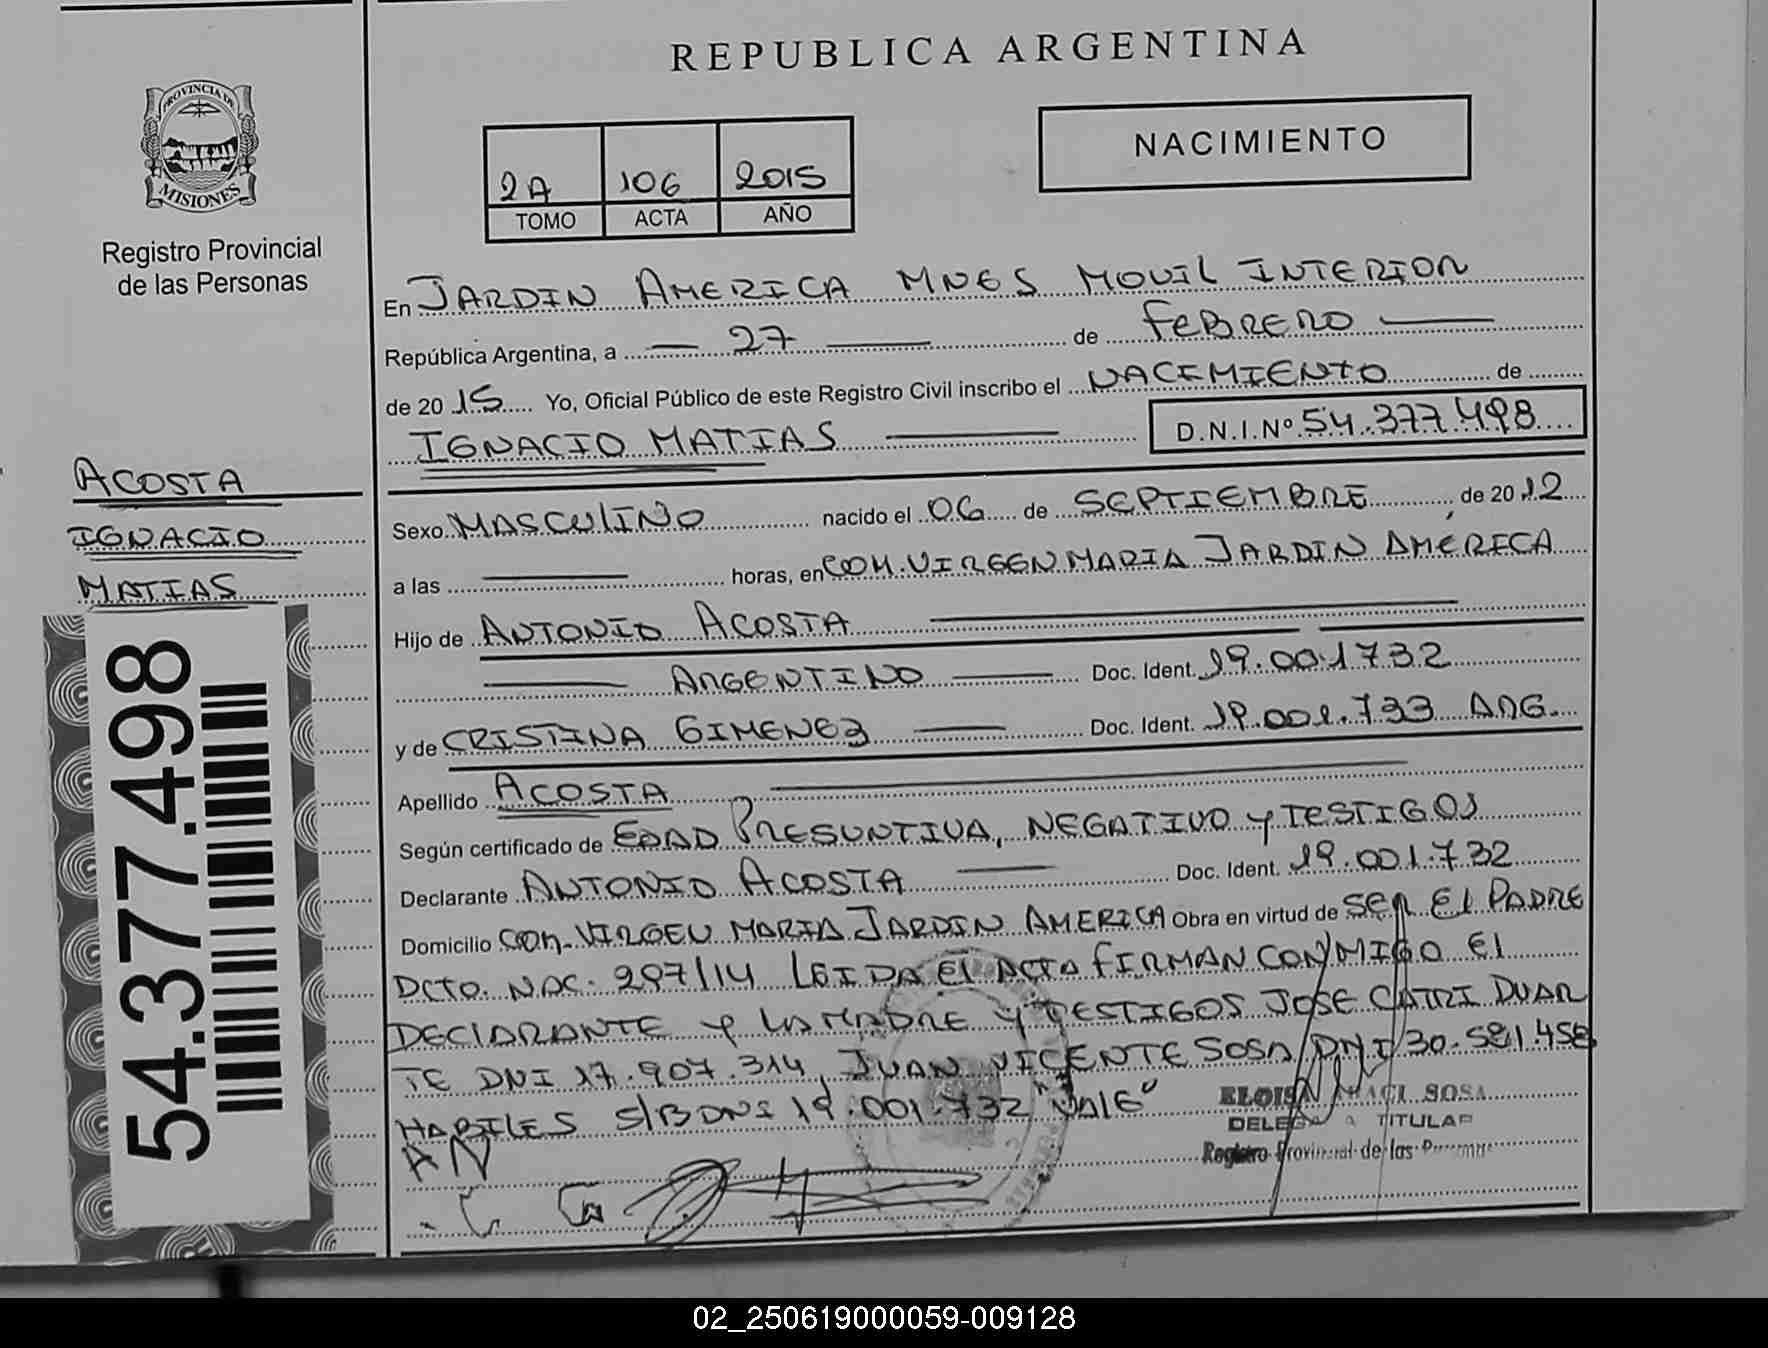 REPUBLICA ARGENTINA
PROVINCIA DE
MISIONES
Registro Provincial
de las Personas
NACIMIENTO
2A 106 2015
TOMO ACTA AÑO
En JARDIN AMERICA MNES MOVIL INTERIOR
República Argentina, a 27 de FEBRERO
de 2015 Yo, Oficial Público de este Registro Civil inscribo el NACIMIENTO de
IGNACIO MATIAS D.N.I.Nº 54.377.498
ACOSTA
IGNACIO
MATIAS
54.377.498
Sexo MASCULINO nacido el 06 de SEPTIEMBRE, de 2012
a las horas, en COM. VIRGEN MARIA JARDIN AMÉRICA
Hijo de ANTONIO ACOSTA
ARGENTINO Doc. Ident. 19.001.732
y de CRISTINA GIMENEZ Doc. Ident. 19.001.733 ARG.
Apellido ACOSTA
Según certificado de EDAD PRESUNTIVA, NEGATIVO y TESTIGOS
Declarante ANTONIO ACOSTA Doc. Ident. 19.001.732
Domicilio COM. VIRGEN MARIA JARDIN AMERICA Obra en virtud de SER El PADRE
DCTO. NAC. 297/14 LEIDA El ACTA FIRMAN CONMIGO El
DECLARANTE y LA MADRE y TESTIGOS JOSE CATRI DUAR
TE DNI 17.907.314, JUAN VICENTE SOSA DNI 30.581.458
HABILES S/B DNI 19.001.732 "VALE"
AN
DELEGADA TITULAR
Registro Provincial de las Personas
02_250619000059-009128